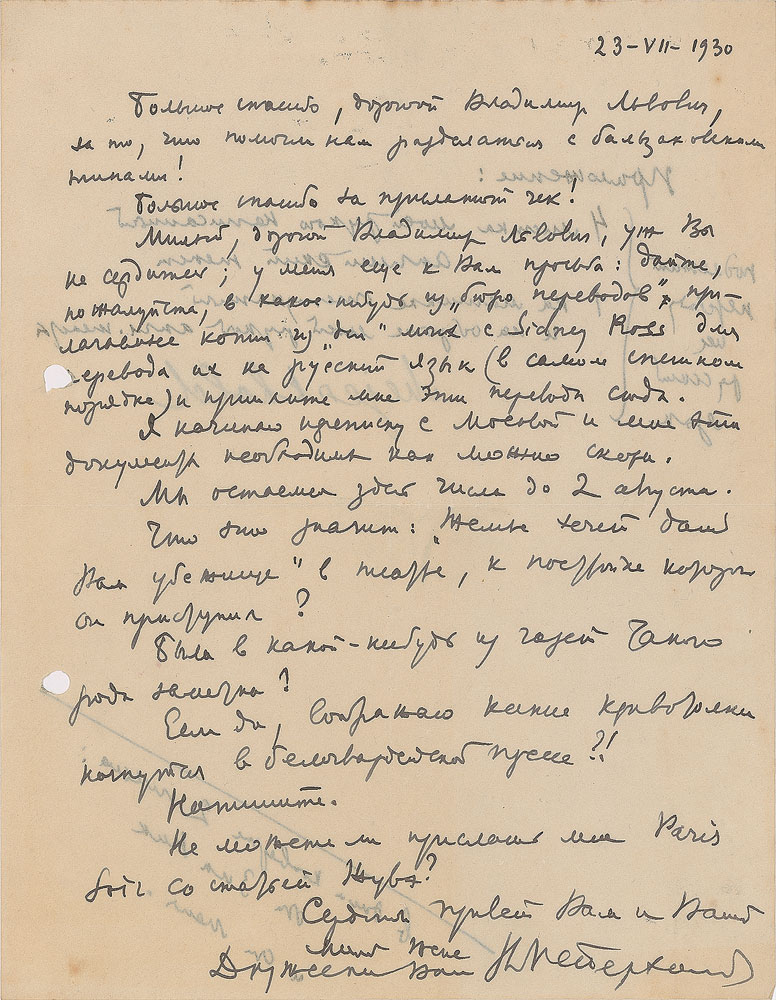 23-VII-1930
Большое спасибо, дорогой Владимир Львович,
за то, что помогли нам разделаться с бальзаковскими
типами!
Большое спасибо за присланный чек!
Милый, дорогой Владимир Львович, уж Вы
не сердитесь; у меня еще к Вам просьба: дайте,
пожалуйста, в какое-нибудь из „бюро переводов" при-
лагаемые копии из моих с Sidney Ross для
перевода их на русский язык (в самом спешном
порядке) и пришлите мне эти переводы сюда.
Я начинаю переписку с Москвой и мне эти
документы необходимы как можно скорей.
Мы остаемся здесь числа до 2 августа.
Что это значит: „Жемье хочет дать
Вам убежище" в театре, к постройке которого
он приступил?
Была в какой-нибудь из газет такого
рода заметка?
Если да, воображаю какие кривотолки
начнутся в белогвардейской прессе?!
Напишите.
Не можете ли прислать мне Paris
Soir со статьей
Сердечный привет Вам и Вашей
милой жене
Дружески Ваш В. Мейерхольд
Приложение: